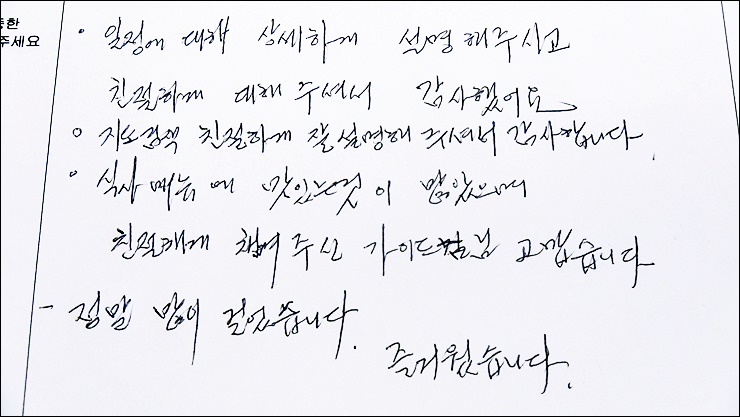 중한
주세요
· 일정에 대해 상세하게 설명해주시고
친절하게 대해 주셔서 감사했어요
○ 지도검색 친절하게 잘 설명해 주셔서 감사합니다
· 식사메뉴에 맛있는것이 많았으며
친절하게 챙겨주신 가이드님 고맙습니다
- 정말 많이 걸었습니다.
즐거웠습니다.